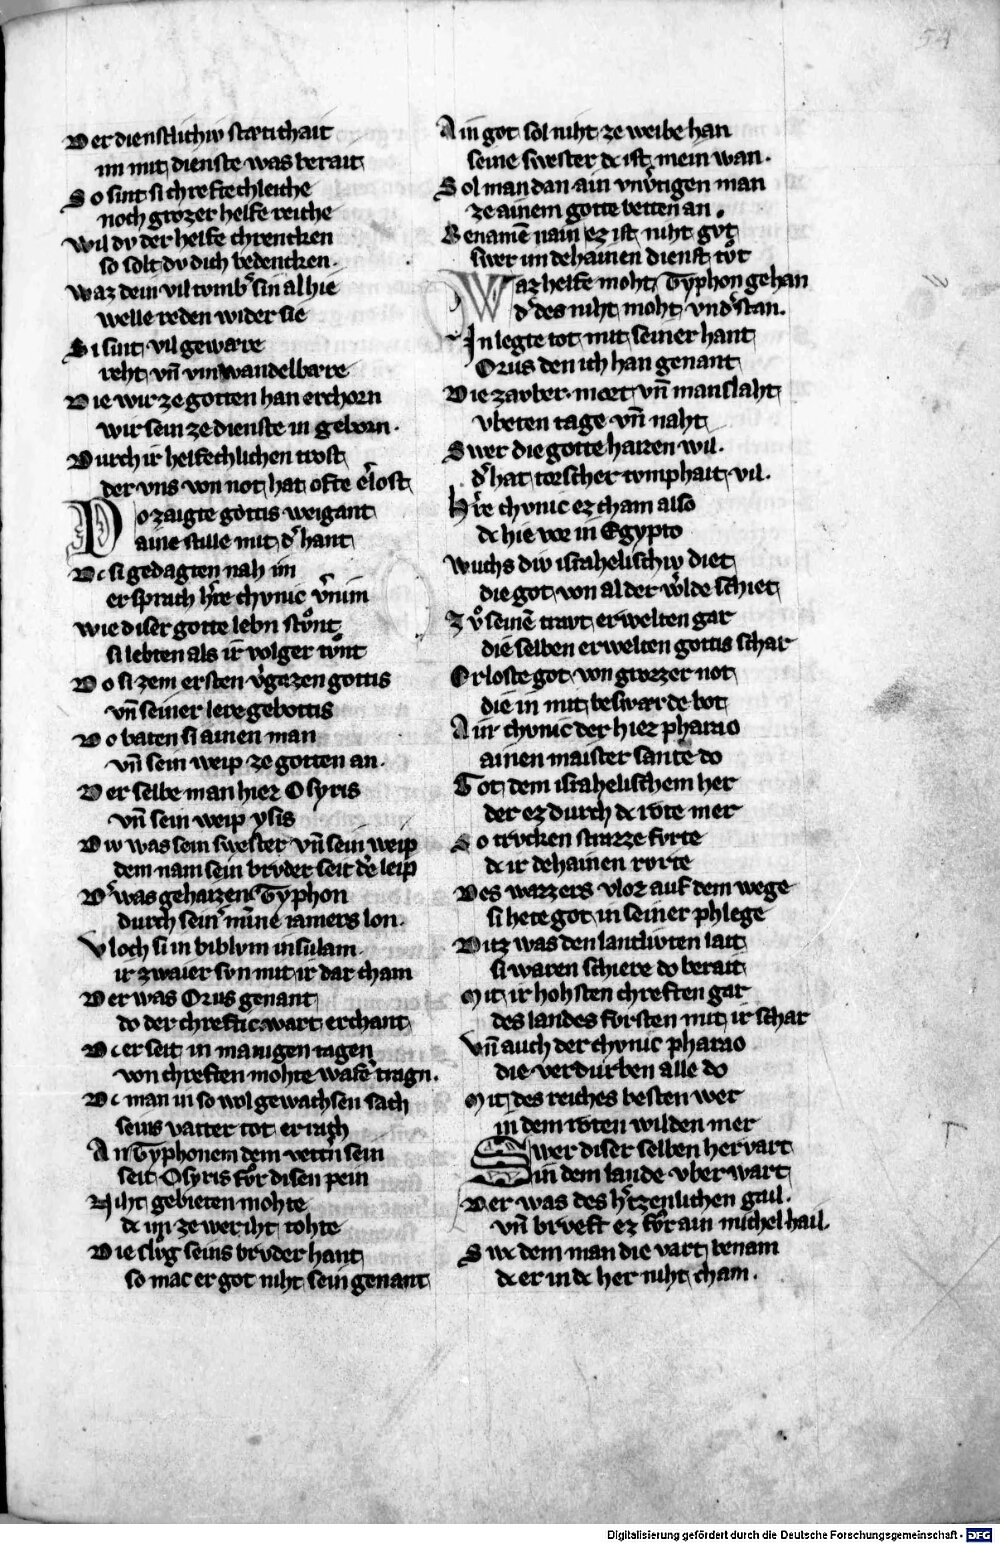 54
Der dienstlichiv stætichait
im mit dienste was berait
So sint si chreftechleiche
noch grozer helfe reiche
Wil dv der helfe chrencken
so solt dv dich bedencken.
Waz dein vil tvmbˢ sin al hie
welle reden wider sie
Si sint vil gewære
reht vn̄ vnwandelbære
Die wir ze gotten han erchorn
wir sein ze dienste in geborn.
Durch ir helfechlichen trost
der vns von not hat ofte eˢlost
Do zaigte gottis weigant
aine stille mit dˢ hant
Dc si gedagten nah im
er sprach hˢre chvnic vˢnim
Wie diser gotte lebn stv̊nt
si lebten als ir volger tv̊nt
Do si zem ersten vˢgazen gottis
vn̄ seiner lere gebottis
Do baten si ainen man
vn̄ sein weip ze gotten an.
Der selbe man hiez Osyris
vn̄ sein weip ysis
Div was sein swester vn̄ sein weip
dem nam sein brvder seit dē leip
Dˢ was gehaizen Typhon
durch seinˢ mīne iamers lon.
Vloch si in biblvm insulam
ir zwaier svn mit ir dar cham
Der was Orus genant
do der chreftic wart erchant
Dc er seit in manigen tagen
von chreften mohte wafē tragn.
Dc man in so wol gewachsen sach
seins vatter tot er rach
An Typhonem dem vettˢn sein
seit Osyris fv̊r disen pein
Niht gebieten mohte
dc im ze wer iht tohte
Die slv̊g seins brvder hant
so mac er got niht sein genant
Ain got sol niht ze weibe han
seine swester dc ist mein wan.
Sol man dan ain vnv̊tigen man
ze ainem gotte betten an.
Benamē nain ez ist niht gv̊t
swer im dehainen dienst tv̊t
Waz helfe moht Typhon gehan
dˢ des niht moht vndˢstan.
In legte tot mit seiner hant
Orus den ich han genant
Die zavber. mort vn̄ manslaht
vbeten tage vn̄ naht
Swer die gotte haizen wil.
dˢ hat torscher tvmphait vil.
Hˢre chvnic ez cham also
dc hie vor in Egypto
Wuchs div israhelischiv diet
die got von al der wˢlde schiet
Zv̊ seinē travt erwelten gar
die selben erwelten gottis schar
Erloste got von grozzer not
die in mit beswærde bot
Ain chvnic der hiez pharao
ainen maister sante do
Got dem israhelischem her
der ez durch dc rote mer
So trvcken strazze fvrte
dc ir dehainen rvrte
Des wazzers vloz auf dem wege
si hete got in seiner phlege
Ditz was den lantlivten lait
si waren schiere do berait
Mit ir hohsten chreften gar
des landes fvrsten mit ir schar
Vn̄ auch der chvnic pharao
die verdurben alle do
Mit des reiches besten wer
in dem roten wilden mer
Swer diser selben hervart
in dem lande vber wart
Der was des hˢtzenlichen gail.
vn̄ brveft ez fv̊r ain michel hail.
Swē dem man die vart benam
dc er in dc her niht cham.
Digitalisierung gefördert durch die Deutsche Forschungsgemeinschaft - DFG